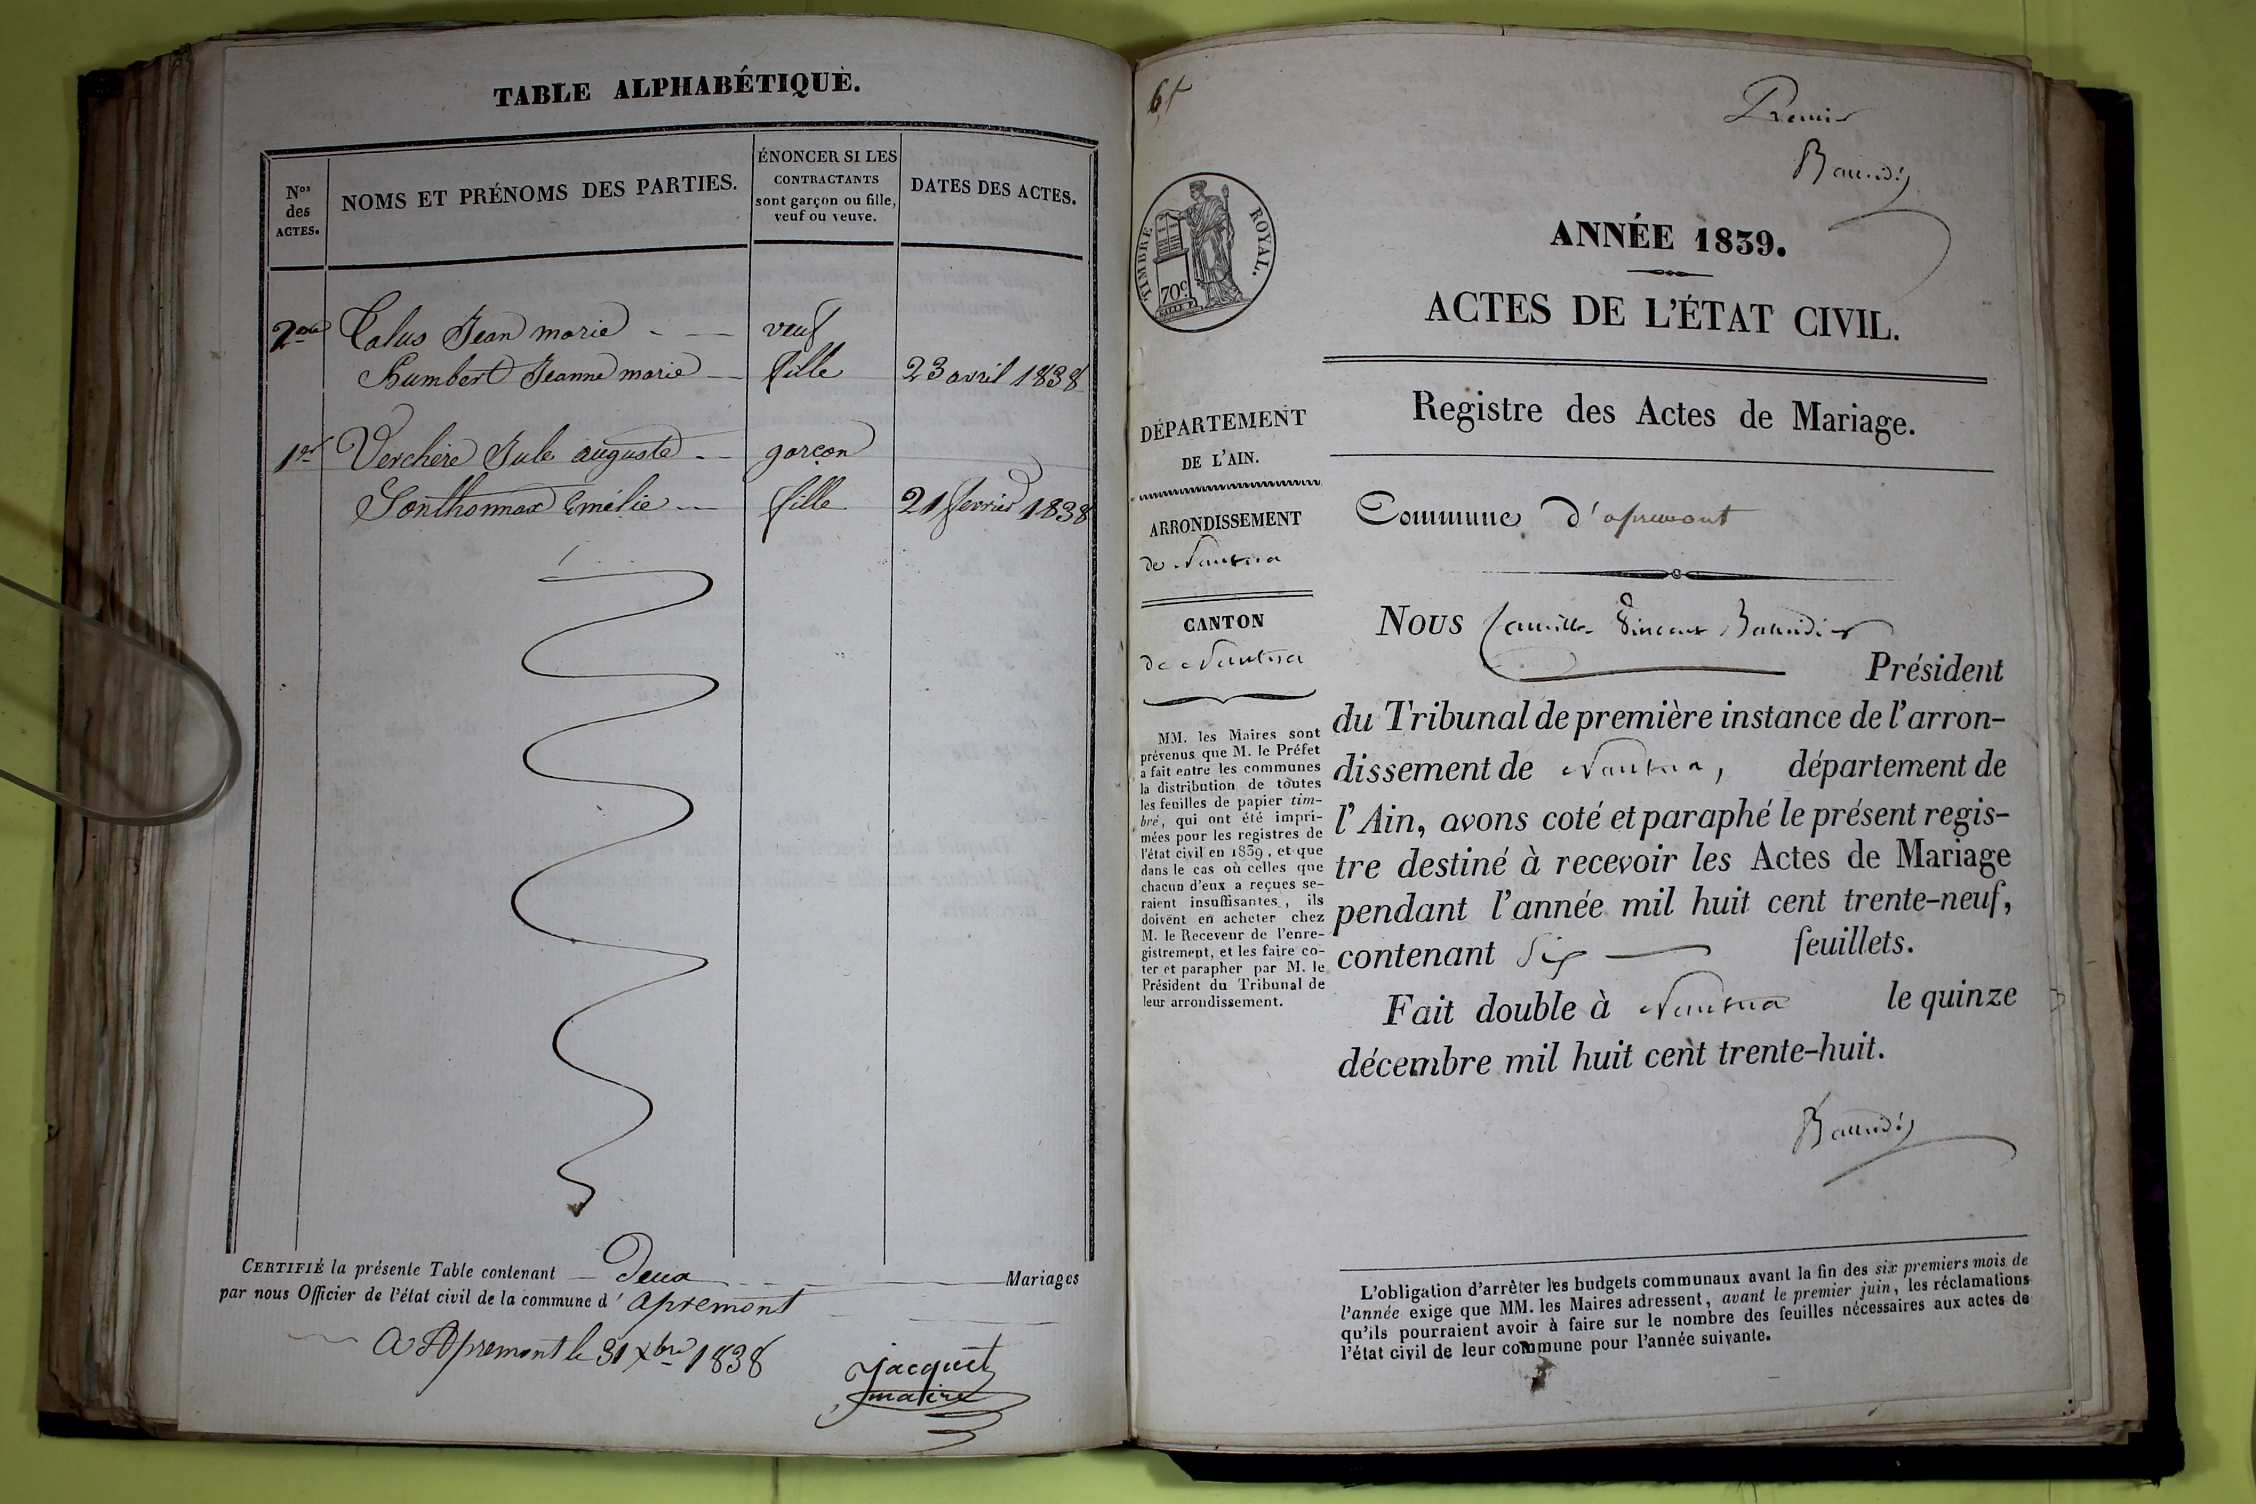 TABLE ALPHABÉTIQUE.
Nos
des
ACTES.
NOMS ET PRÉNOMS DES PARTIES.
ÉNONCER SI LES
CONTRACTANTS
sont garçon ou fille,
veuf ou veuve.
DATES DES ACTES.
2me Calus Jean marie veuf
humbert Jeanne marie fille 23 avril 1838
1er Verchère Jule auguste garçon
Sonthonnax Emélie fille 21 fevrier 1838
CERTIFIÉ la présente Table contenant Deux Mariages
par nous Officier de l'état civil de la commune d' apremont
A Apremont le 31 xbre 1838
jacquet
maire
Premier
Baudier
TIMBRE ROYAL.
70c
ANNÉE 1839.
ACTES DE L'ÉTAT CIVIL.
Registre des Actes de Mariage.
DÉPARTEMENT
DE L'AIN.
ARRONDISSEMENT
de Nantua
CANTON
de Nantua
MM. les Maires sont
prévenus que M. le Préfet
a fait entre les communes
la distribution de toutes
les feuilles de papier tim-
bré, qui ont été impri-
mées pour les registres de
l'état civil en 1839, et que
dans le cas où celles que
chacun d'eux a reçues se-
raient insuffisantes, ils
doivent en acheter chez
M. le Receveur de l'enre-
gistrement, et les faire co-
ter et parapher par M. le
Président du Tribunal de
leur arrondissement.
Commune d'apremont
Nous Camille Vincent Baudier
Président
du Tribunal de première instance de l'arron-
dissement de Nantua, département de
l'Ain, avons coté et paraphé le présent regis-
tre destiné à recevoir les Actes de Mariage
pendant l'année mil huit cent trente-neuf,
contenant Six feuillets.
Fait double à Nantua le quinze
décembre mil huit cent trente-huit.
Baudier
L'obligation d'arrêter les budgets communaux avant la fin des six premiers mois de
l'année exige que MM. les Maires adressent, avant le premier juin, les réclamations
qu'ils pourraient avoir à faire sur le nombre des feuilles nécessaires aux actes de
l'état civil de leur commune pour l'année suivante.